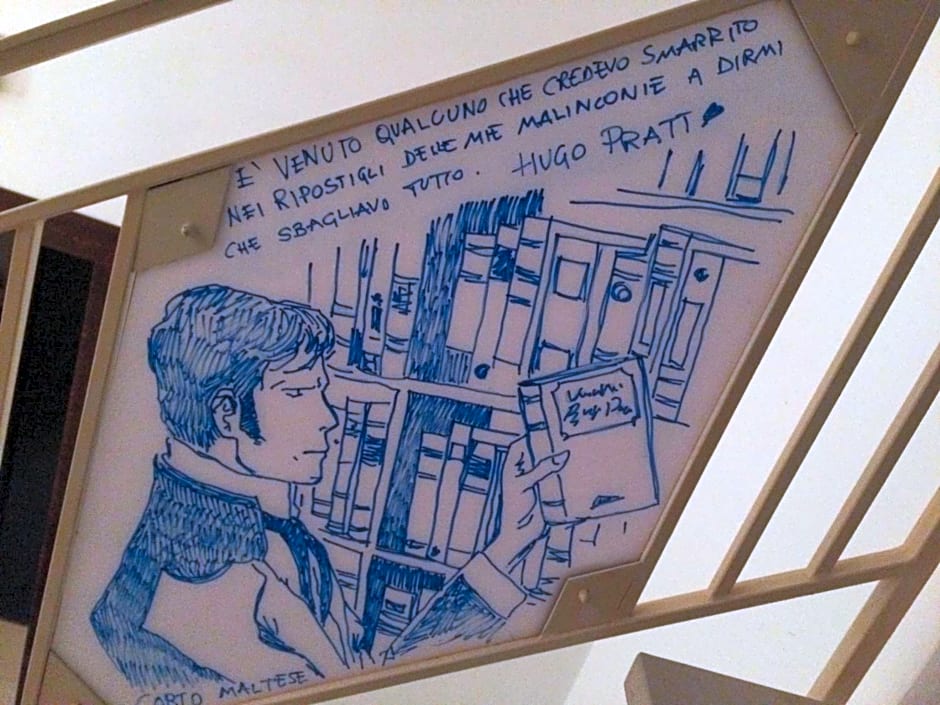 E' VENUTO QUALCUNO CHE CREDEVO SMARRITO
NEI RIPOSTIGLI DELLE MIE MALINCONIE A DIRMI
CHE SBAGLIAVO TUTTO. HUGO PRATT
CORTO MALTESE